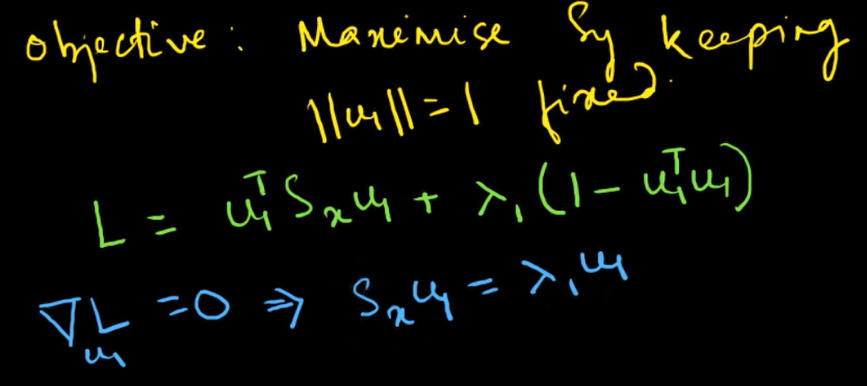 Objective: Maximise Sy keeping
||u₁|| = 1 fixed.
L = u₁ᵀ Sₓ u₁ + λ₁ (1 - u₁ᵀ u₁)
∇_{u₁} L = 0 ⇒ Sₓ u₁ = λ₁ u₁